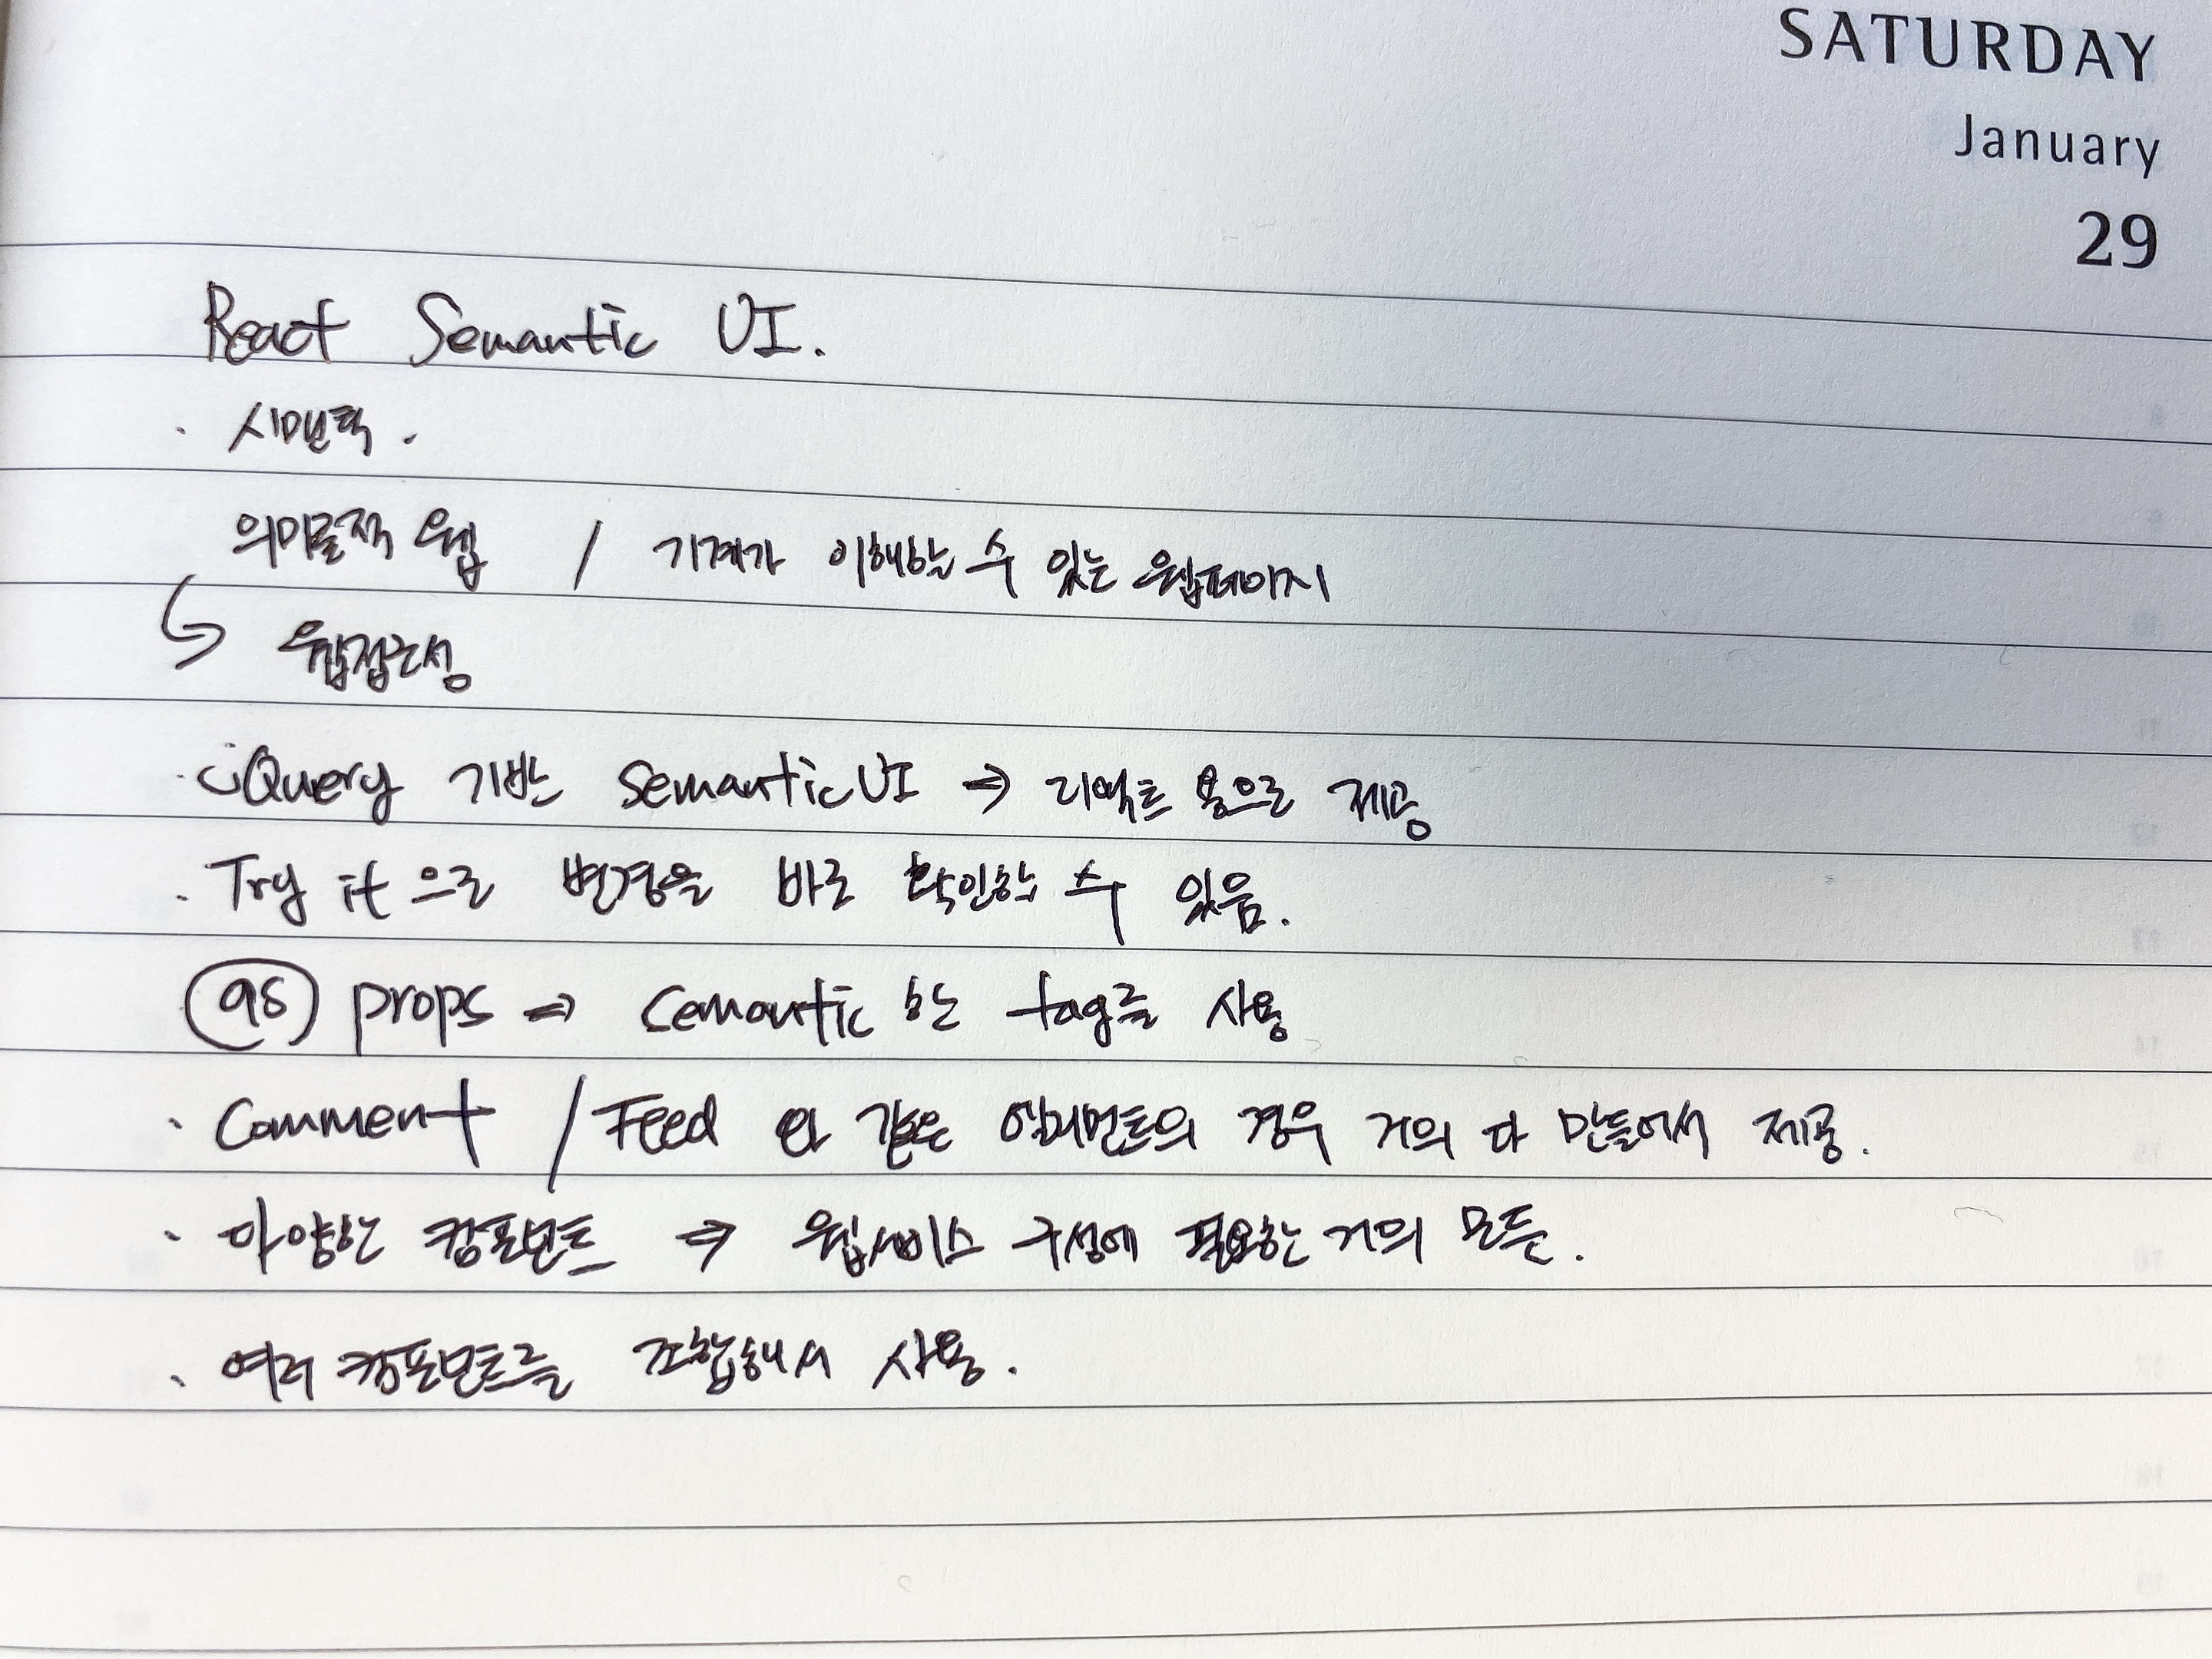 SATURDAY
January
29
React Semantic UI.
· 시멘틱.
의미론적 웹 / 기계가 이해하는 수 있는 웹페이지
↳ 웹접근성
· jQuery 기반 Semantic UI ⇒ 리액트 용으로 제공
· Try it 으로 변경을 바로 확인할 수 있음.
as props ⇒ Semantic 한 tag를 사용
· Comment / Feed 와 같은 엘리먼트의 경우 거의 다 만들어서 제공.
· 다양한 컴포넌트 ⇒ 웹서비스 구성에 필요한 거의 모든.
· 여러 컴포넌트를 조합해서 사용.